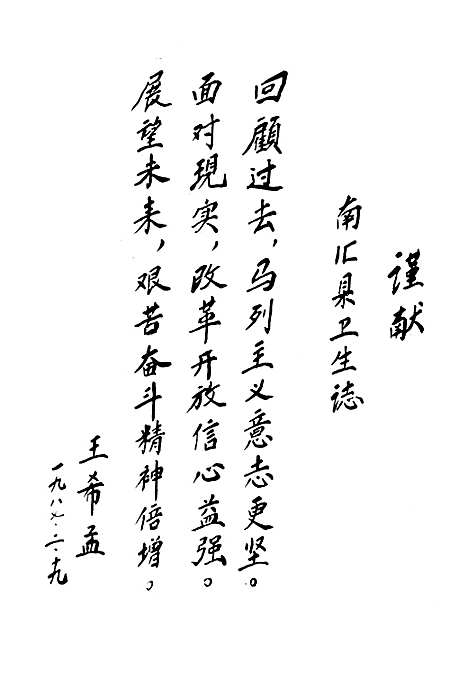 谨献
南汇县卫生誌
回顾过去，马列主义意志更坚。
面对現实，改革开放信心益强。
展望未来，艰苦奋斗精神倍增。
王希孟
一九八七·二·十九